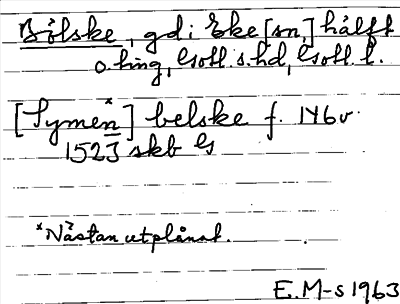 Bölske, gd i Eke [sn,] hälft
o. ting, Gotl. s. hd, Gotl. l.
[Symen*] belske f. 146v.
1523 skb G
*Nästan utplånat.
E. M-s 1963